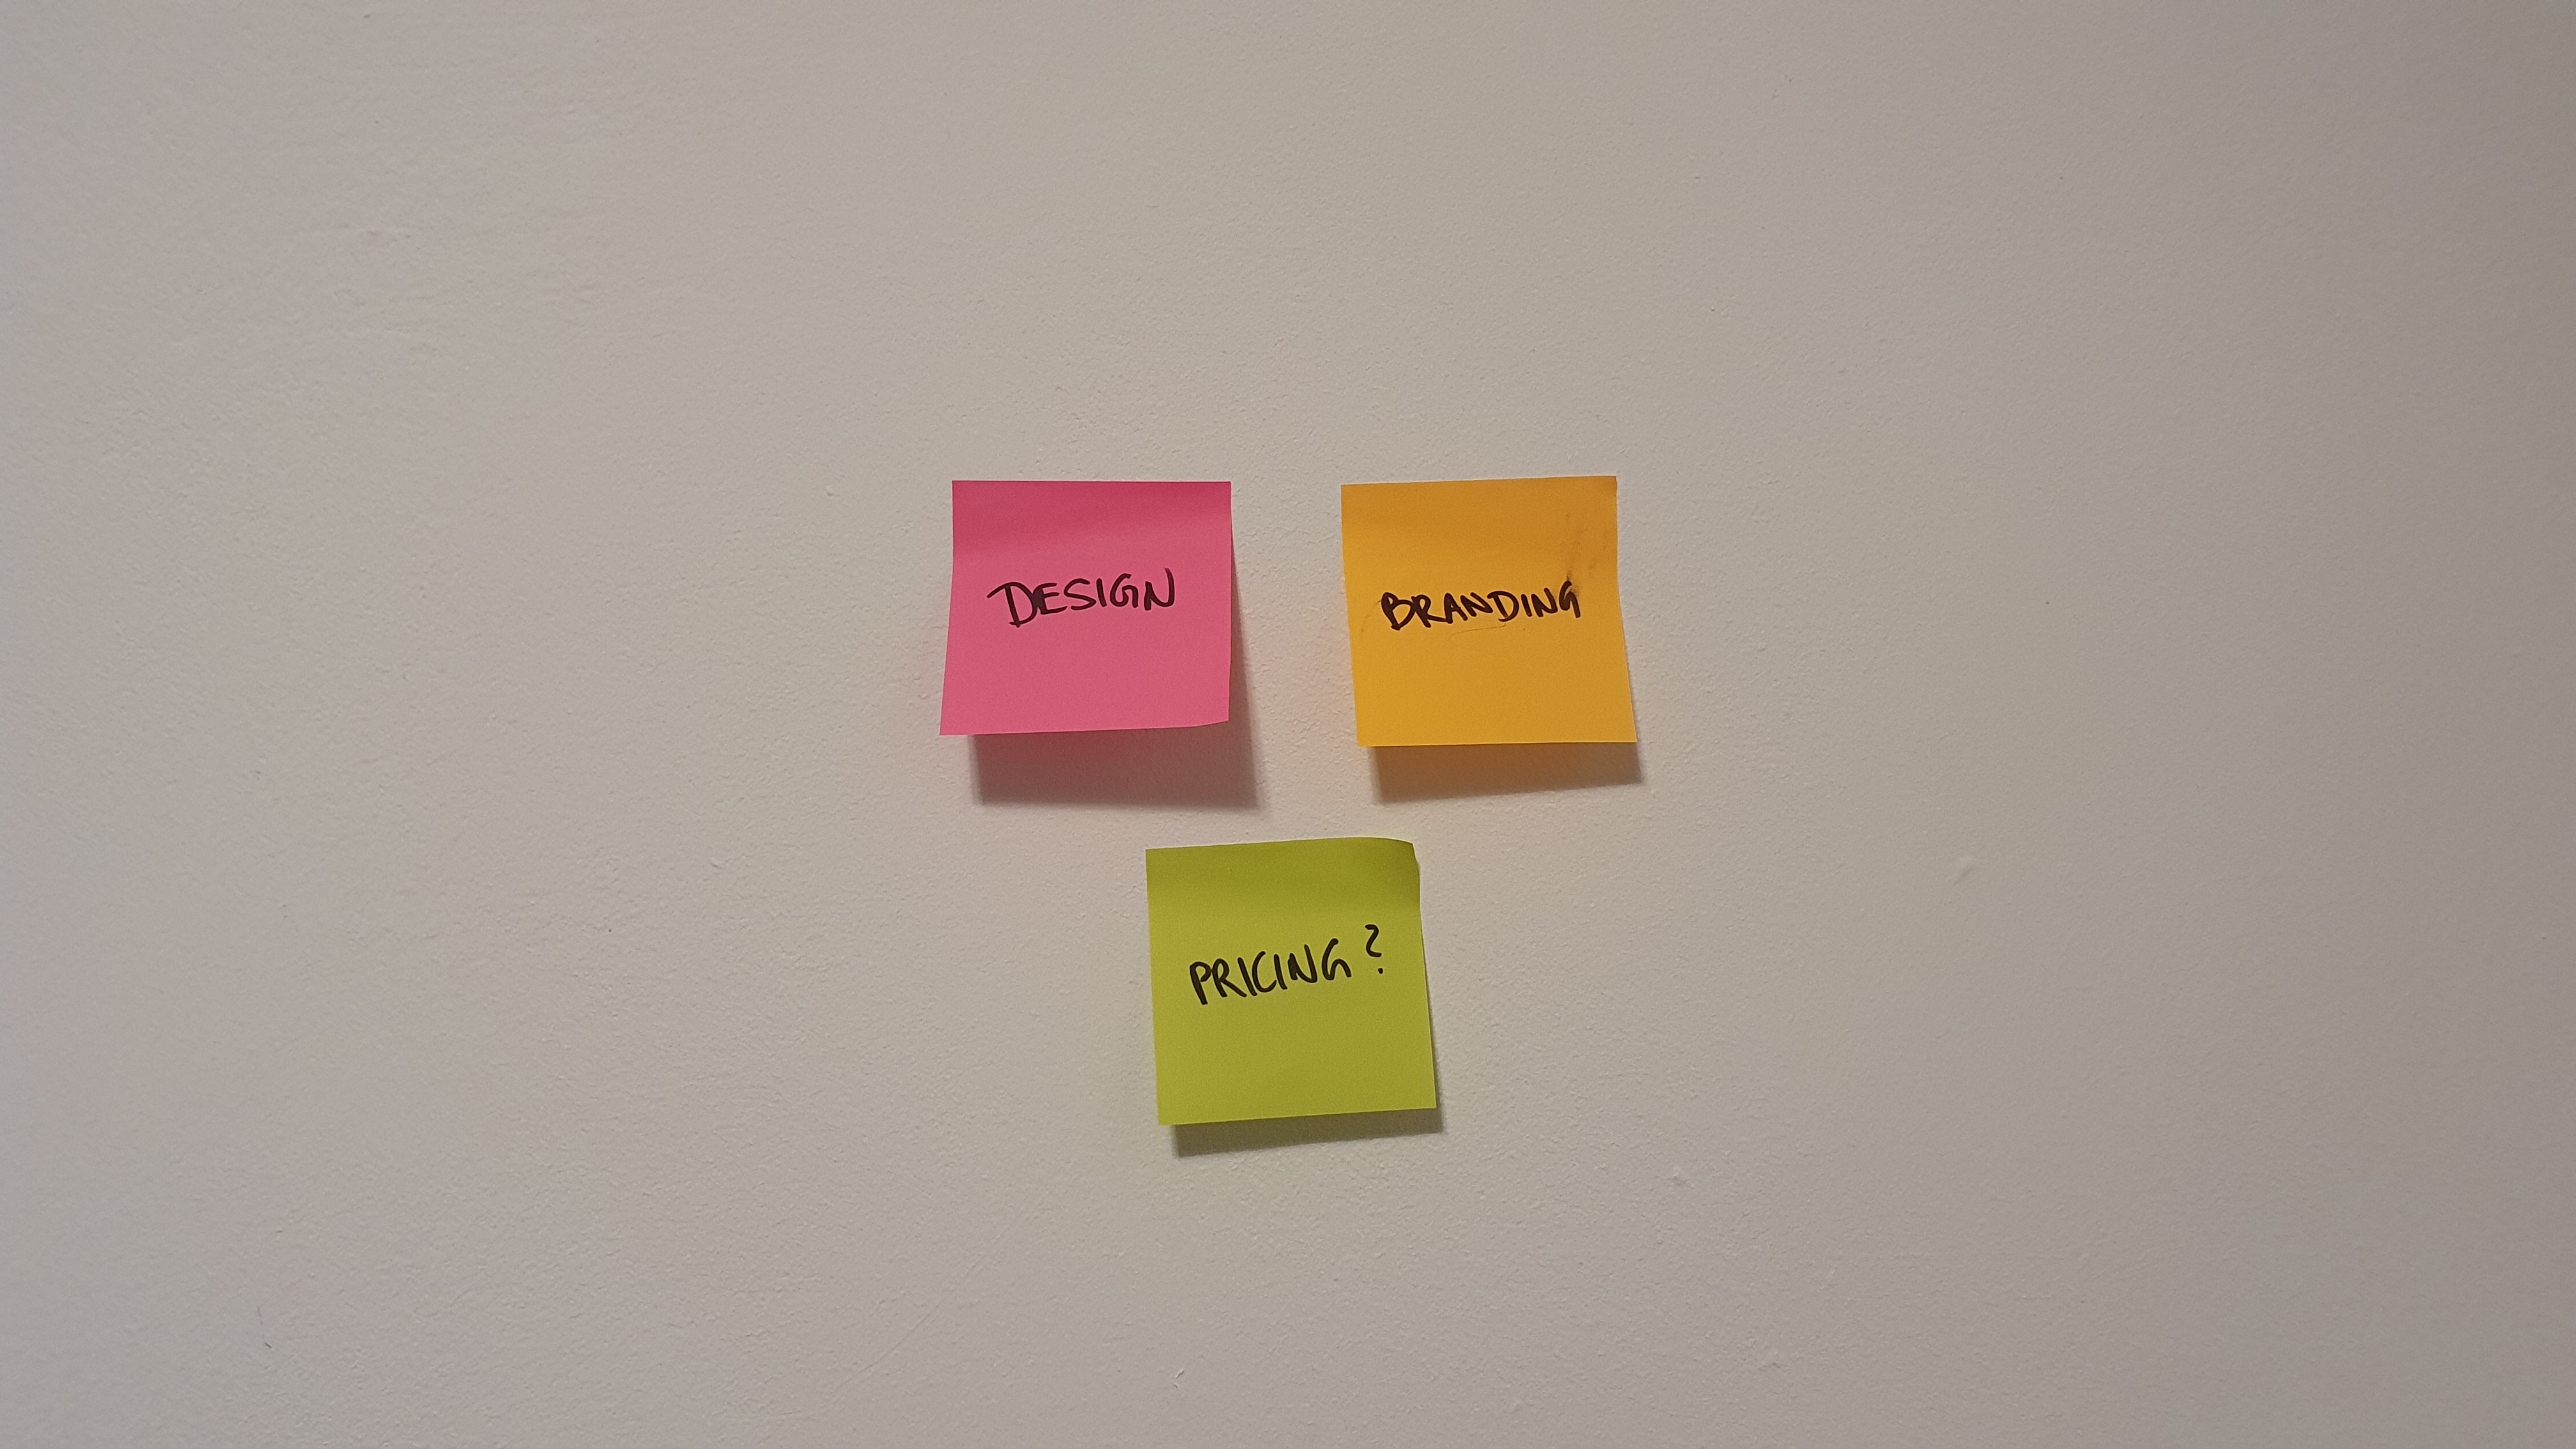 DESIGN
BRANDING
PRICING?